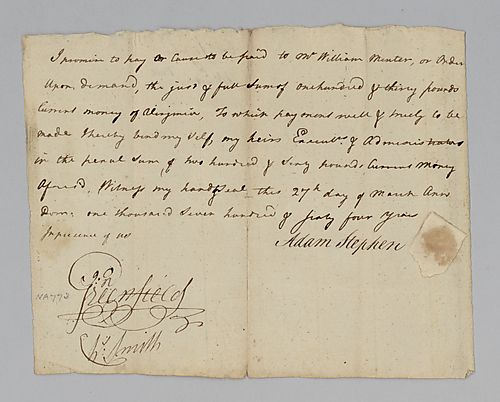 I promise to pay or Cause to be paid to Mr William Minter, or Order
Upon demand, the just & full Sum of one hundred & thirty pounds
Current money of Virginia, To which payment well & truly to be
made I hereby bind my Self, my heirs Execut.rs & Administrators
in the penal Sum, of two hundred & Sixty pounds Current Money
Afores.d, Witness my hand & Seal this 27th day of March Ann
Dom: one thousand Seven hundred & Sixty four Year
In presence of us
Adam Stephen
Greenfield
Smith
NA773